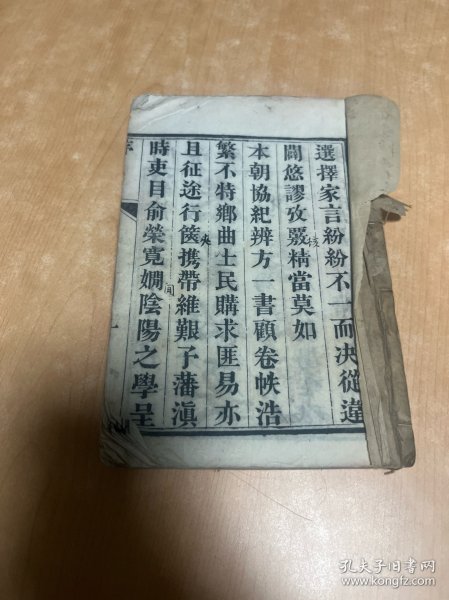 選擇家言紛紛不一而決從違
闢悠謬攷覈精當莫如
核
本朝協紀辨方一書顧卷帙浩
繁不特鄉曲士民購求匪易亦
且征途行篋攜帶維艱予藩滇
夾
時吏目俞榮寬嫺陰陽之學呈
閒
孔夫子旧书网
www.kongfz.com